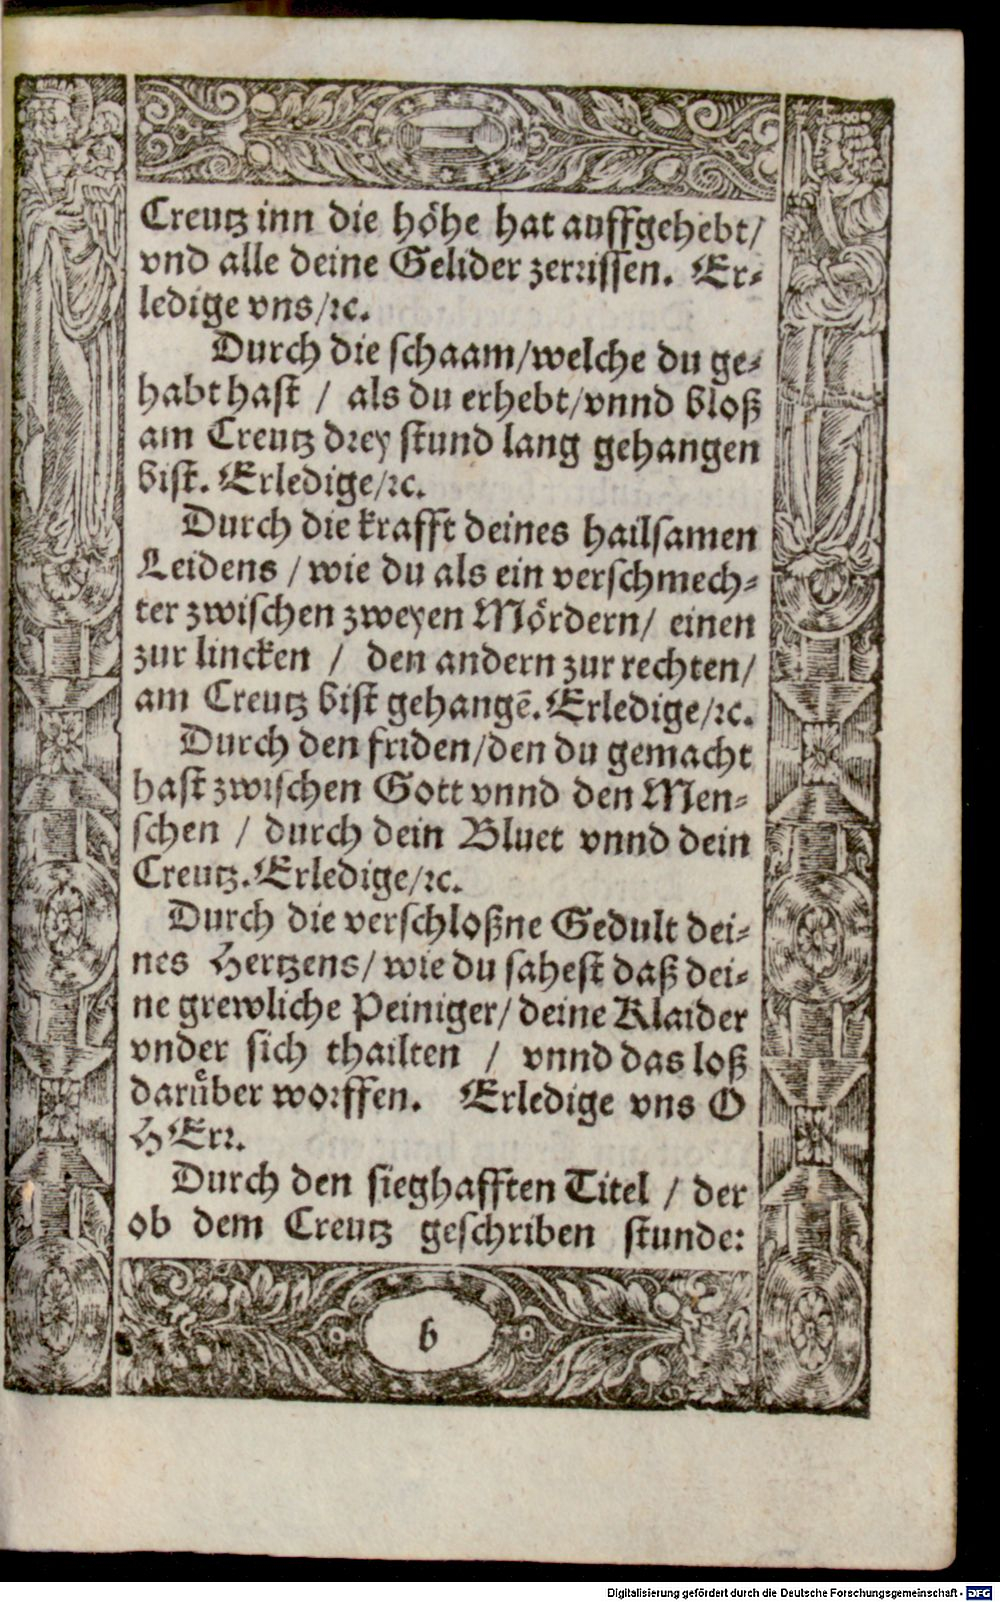 Creutz inn die höhe hat auffgehebt/
vnd alle deine Gelider zerrissen. Er-
ledige vns/ꝛc.
Durch die schaam/welche du ge-
habt hast / als du erhebt/vnnd bloß
am Creutz drey stund lang gehangen
bist. Erledige/ꝛc.
Durch die krafft deines hailsamen
Leidens / wie du als ein verschmech-
ter zwischen zweyen Mördern/ einen
zur lincken / den andern zur rechten/
am Creutz bist gehangẽ. Erledige/ꝛc.
Durch den friden/den du gemacht
hast zwischen Gott vnnd den Men-
schen / durch dein Bluet vnnd dein
Creutz. Erledige/ꝛc.
Durch die verschloßne Gedult dei-
nes Hertzens/ wie du sahest daß dei-
ne grewliche Peiniger/ deine Klaider
vnder sich thailten / vnnd das loß
darüber worffen. Erledige vns O
HErr.
Durch den sieghafften Titel / der
ob dem Creutz geschriben stunde:
b
Digitalisierung gefördert durch die Deutsche Forschungsgemeinschaft - DFG